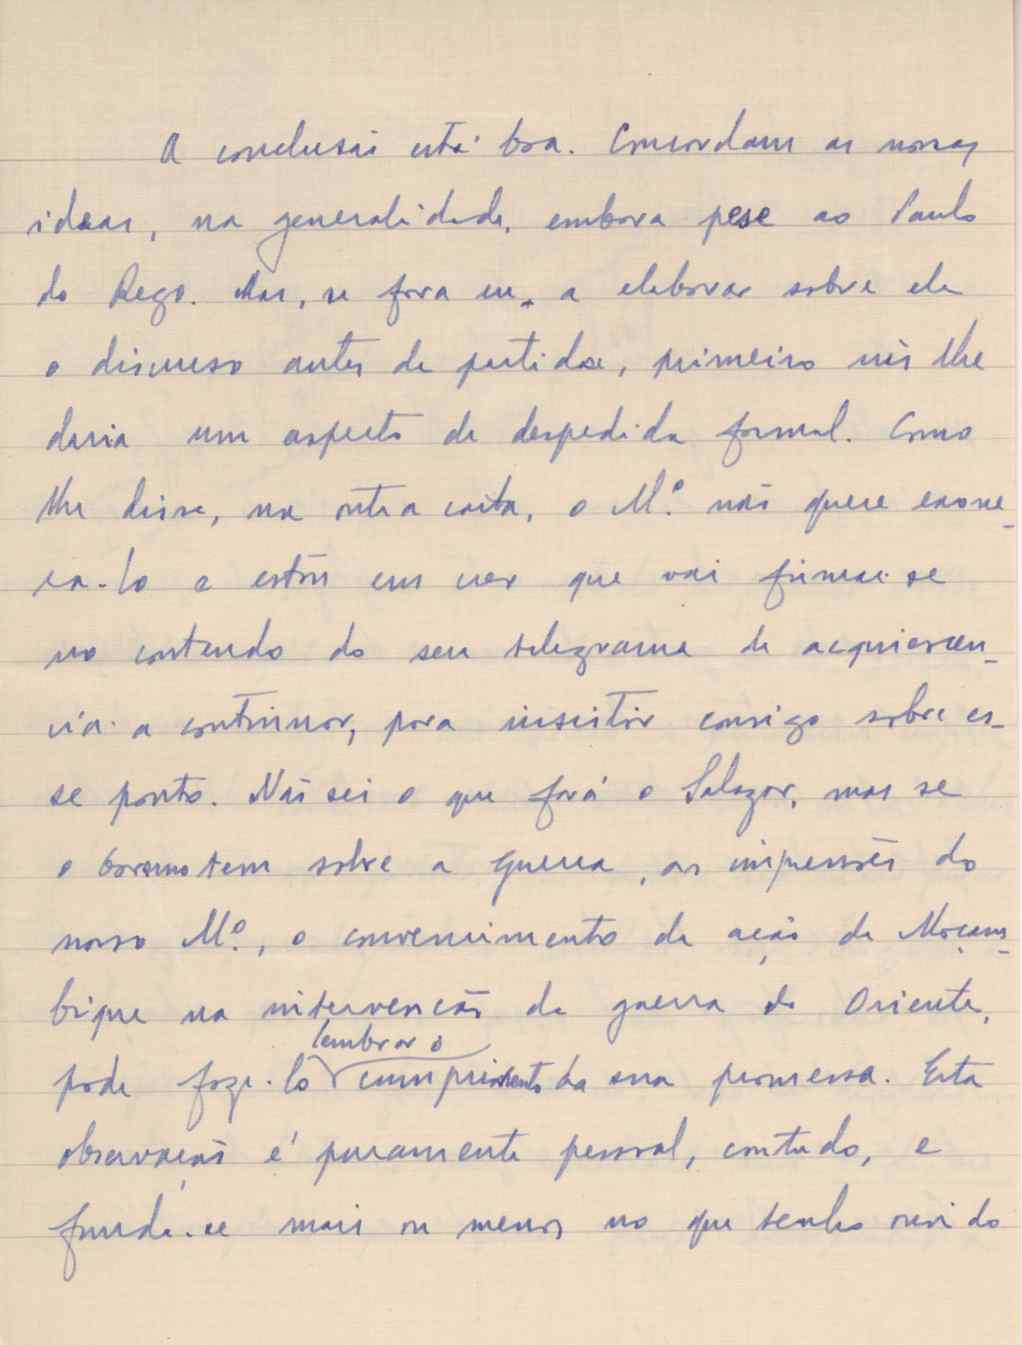 A conclusão está boa. Concordam as nossas
ideas, na generalidade, embora pese ao Paulo
do Rego. Mas, se fora eu a elaborar sobre ele
o discurso antes da partida, primeiro
daria um aspecto de despedida formal. Como
lhe disse, na outra carta, o Mº. não quere exone-
ra-lo e estou em crer que vai firmar-se
no conteudo do seu telegrama de acquiescen-
cia a continuar, para insistir consigo sobre es-
se ponto. Não sei o que fará o Salazar, mas se
o tem sobre a guerra, as impressões do
nosso Mº., o convencimento da ação de Moçam-
bique na intervenção da guerra do Oriente,
lembrar o
pode faze-lo cumprimento da sua promessa. Esta
observação é puramente pessoal, contudo, e
funda-se mais ou menos no que tenho ouvido